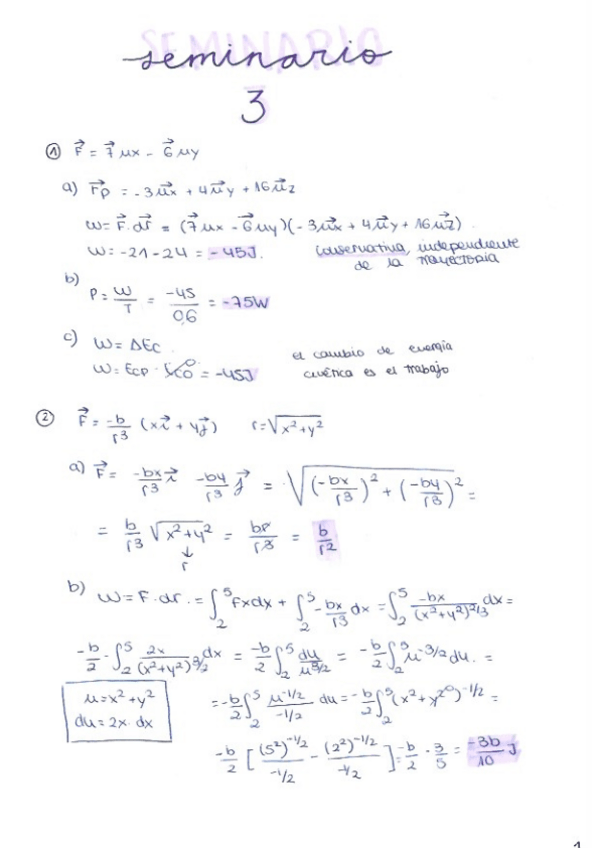 SEMINARIO
seminario
3
① F⃗ = 7⃗ux - 6⃗uy
a) F⃗p = -3u⃗x + 4u⃗y + 16u⃗z
W = F⃗·dr⃗ = (7⃗ux - 6⃗uy)(-3u⃗x + 4u⃗y + 16u⃗z).
W = -21 - 24 = -45J. conservativa, independiente
de la trayectoria
b)
P = W/T = -45/0,6 = -75W
c) W = ΔEc. el cambio de energía
W = Ecp · Eco = -45J cinética es el trabajo
② F⃗ = -b/r³ (xi⃗ + yj⃗) r = √x²+y²
a) F⃗ = -bx/r³ i⃗ -by/r³ j⃗ = √(-bx/r³)² + (-by/r³)² =
= b/r³ √x²+y² = br/r³ = b/r²
↓
r
b) W = F·dr. = ∫₂⁵ Fxdx + ∫₂⁵ -bx/r³ dx = ∫₂⁵ -bx/(x²+y²)^2/3 dx =
-b/2 · ∫₂⁵ 2x/(x²+y²)^3/2 dx = -b/2 ∫₂⁵ du/u^3/2 = -b/2 ∫₂⁵ u^-3/2 du. =
u = x²+y² = -b/2 ∫₂⁵ u^-1/2/-1/2 du = -b/2 ∫₂⁵ (x²+y²⁰)^-1/2 =
du = 2x·dx
-b/2 [(5²)^-1/2/-1/2 - (2²)^-1/2/-1/2] = -b/2 · 3/5 = -3b/10 J
1